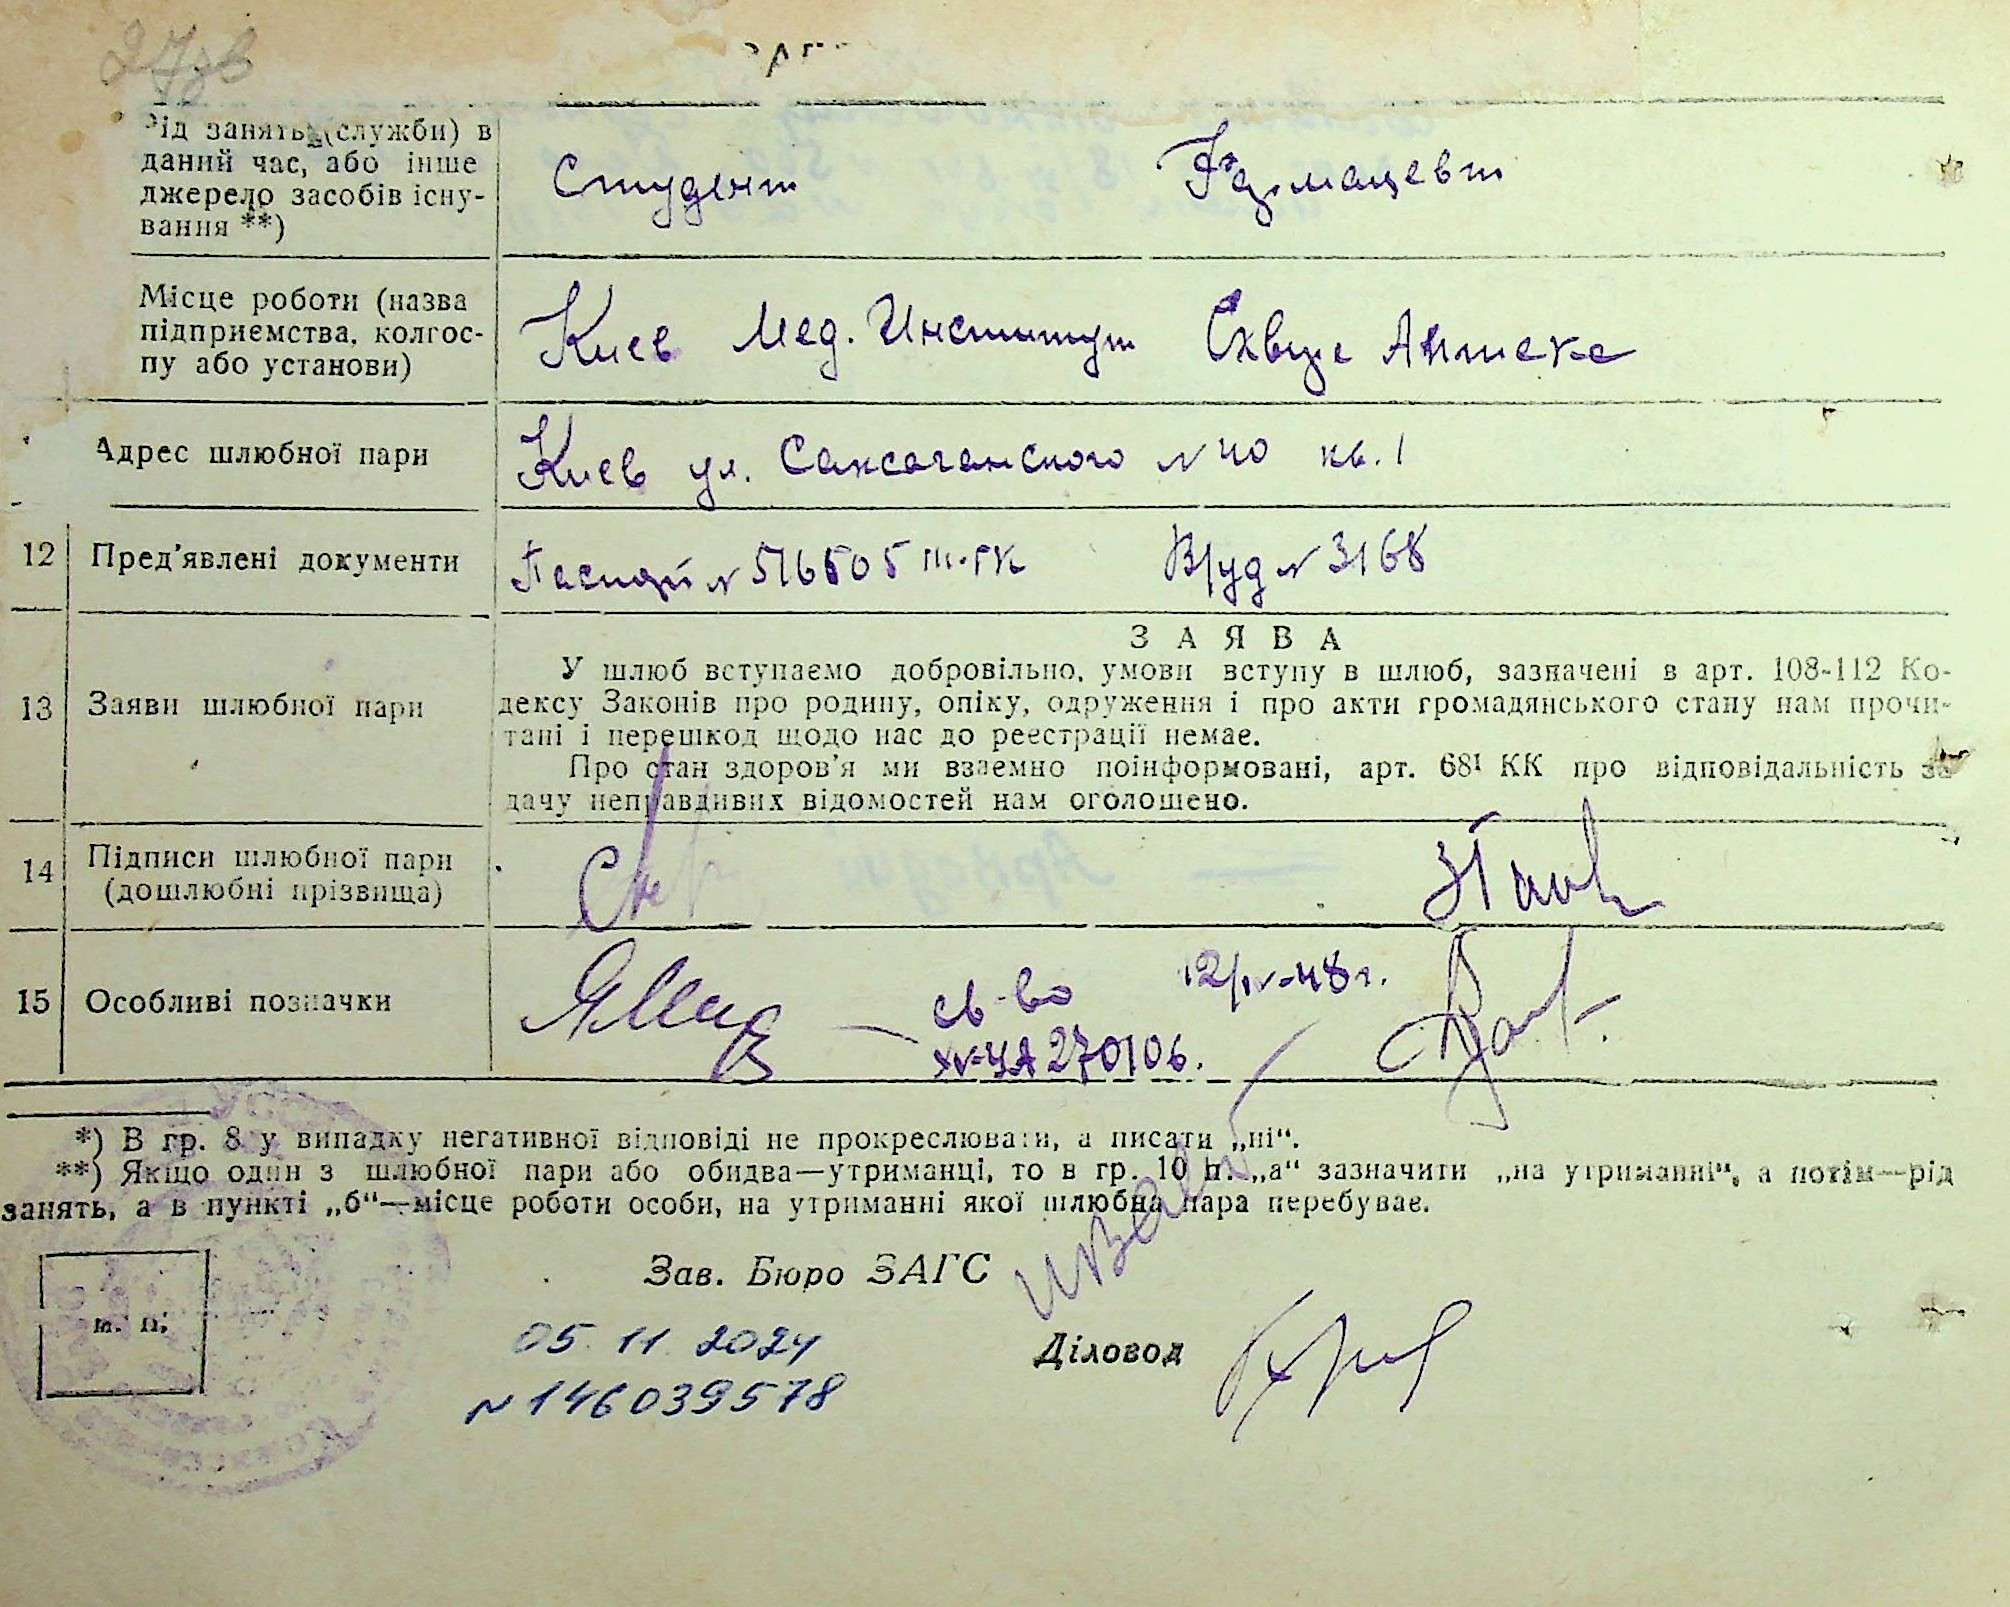 27зв
Рід занять (служби) в
даний час, або інше
джерело засобів існу-
вання **)
Студент Фармацевт
Місце роботи (назва
підприємства, колгос-
пу або установи)
Киев Мед. Институт Аптека
Адрес шлюбної пари
Киев ул. Саксаганского N 40 кв. 1
12 Пред'явлені документи
Паспорт N 516505 III-ГК В/уд N 3168
13 Заяви шлюбної пари
ЗАЯВА
У шлюб вступаємо добровільно, умови вступу в шлюб, зазначені в арт. 108-112 Ко-
дексу Законів про родину, опіку, одруження і про акти громадянського стану нам прочи-
тані і перешкод щодо нас до реєстрації немає.
Про стан здоров'я ми взаємно поінформовані, арт. 68¹ КК про відповідальність за
дачу неправдивих відомостей нам оголошено.
14 Підписи шлюбної пари
(дошлюбні прізвища)
15 Особливі позначки
св-во 12/IV-48 г.
IV-ЧА 270106.
*) В гр. 8 у випадку негативної відповіді не прокреслювати, а писати „ні“.
**) Якщо один з шлюбної пари або обидва—утриманці, то в гр. 10 п. „а“ зазначити „на утриманні“, а потім—рід
занять, а в пункті „б“—місце роботи особи, на утриманні якої шлюбна пара перебуває.
Зав. Бюро ЗАГС
м. п.
05.11.2024
Діловод
N 146039578